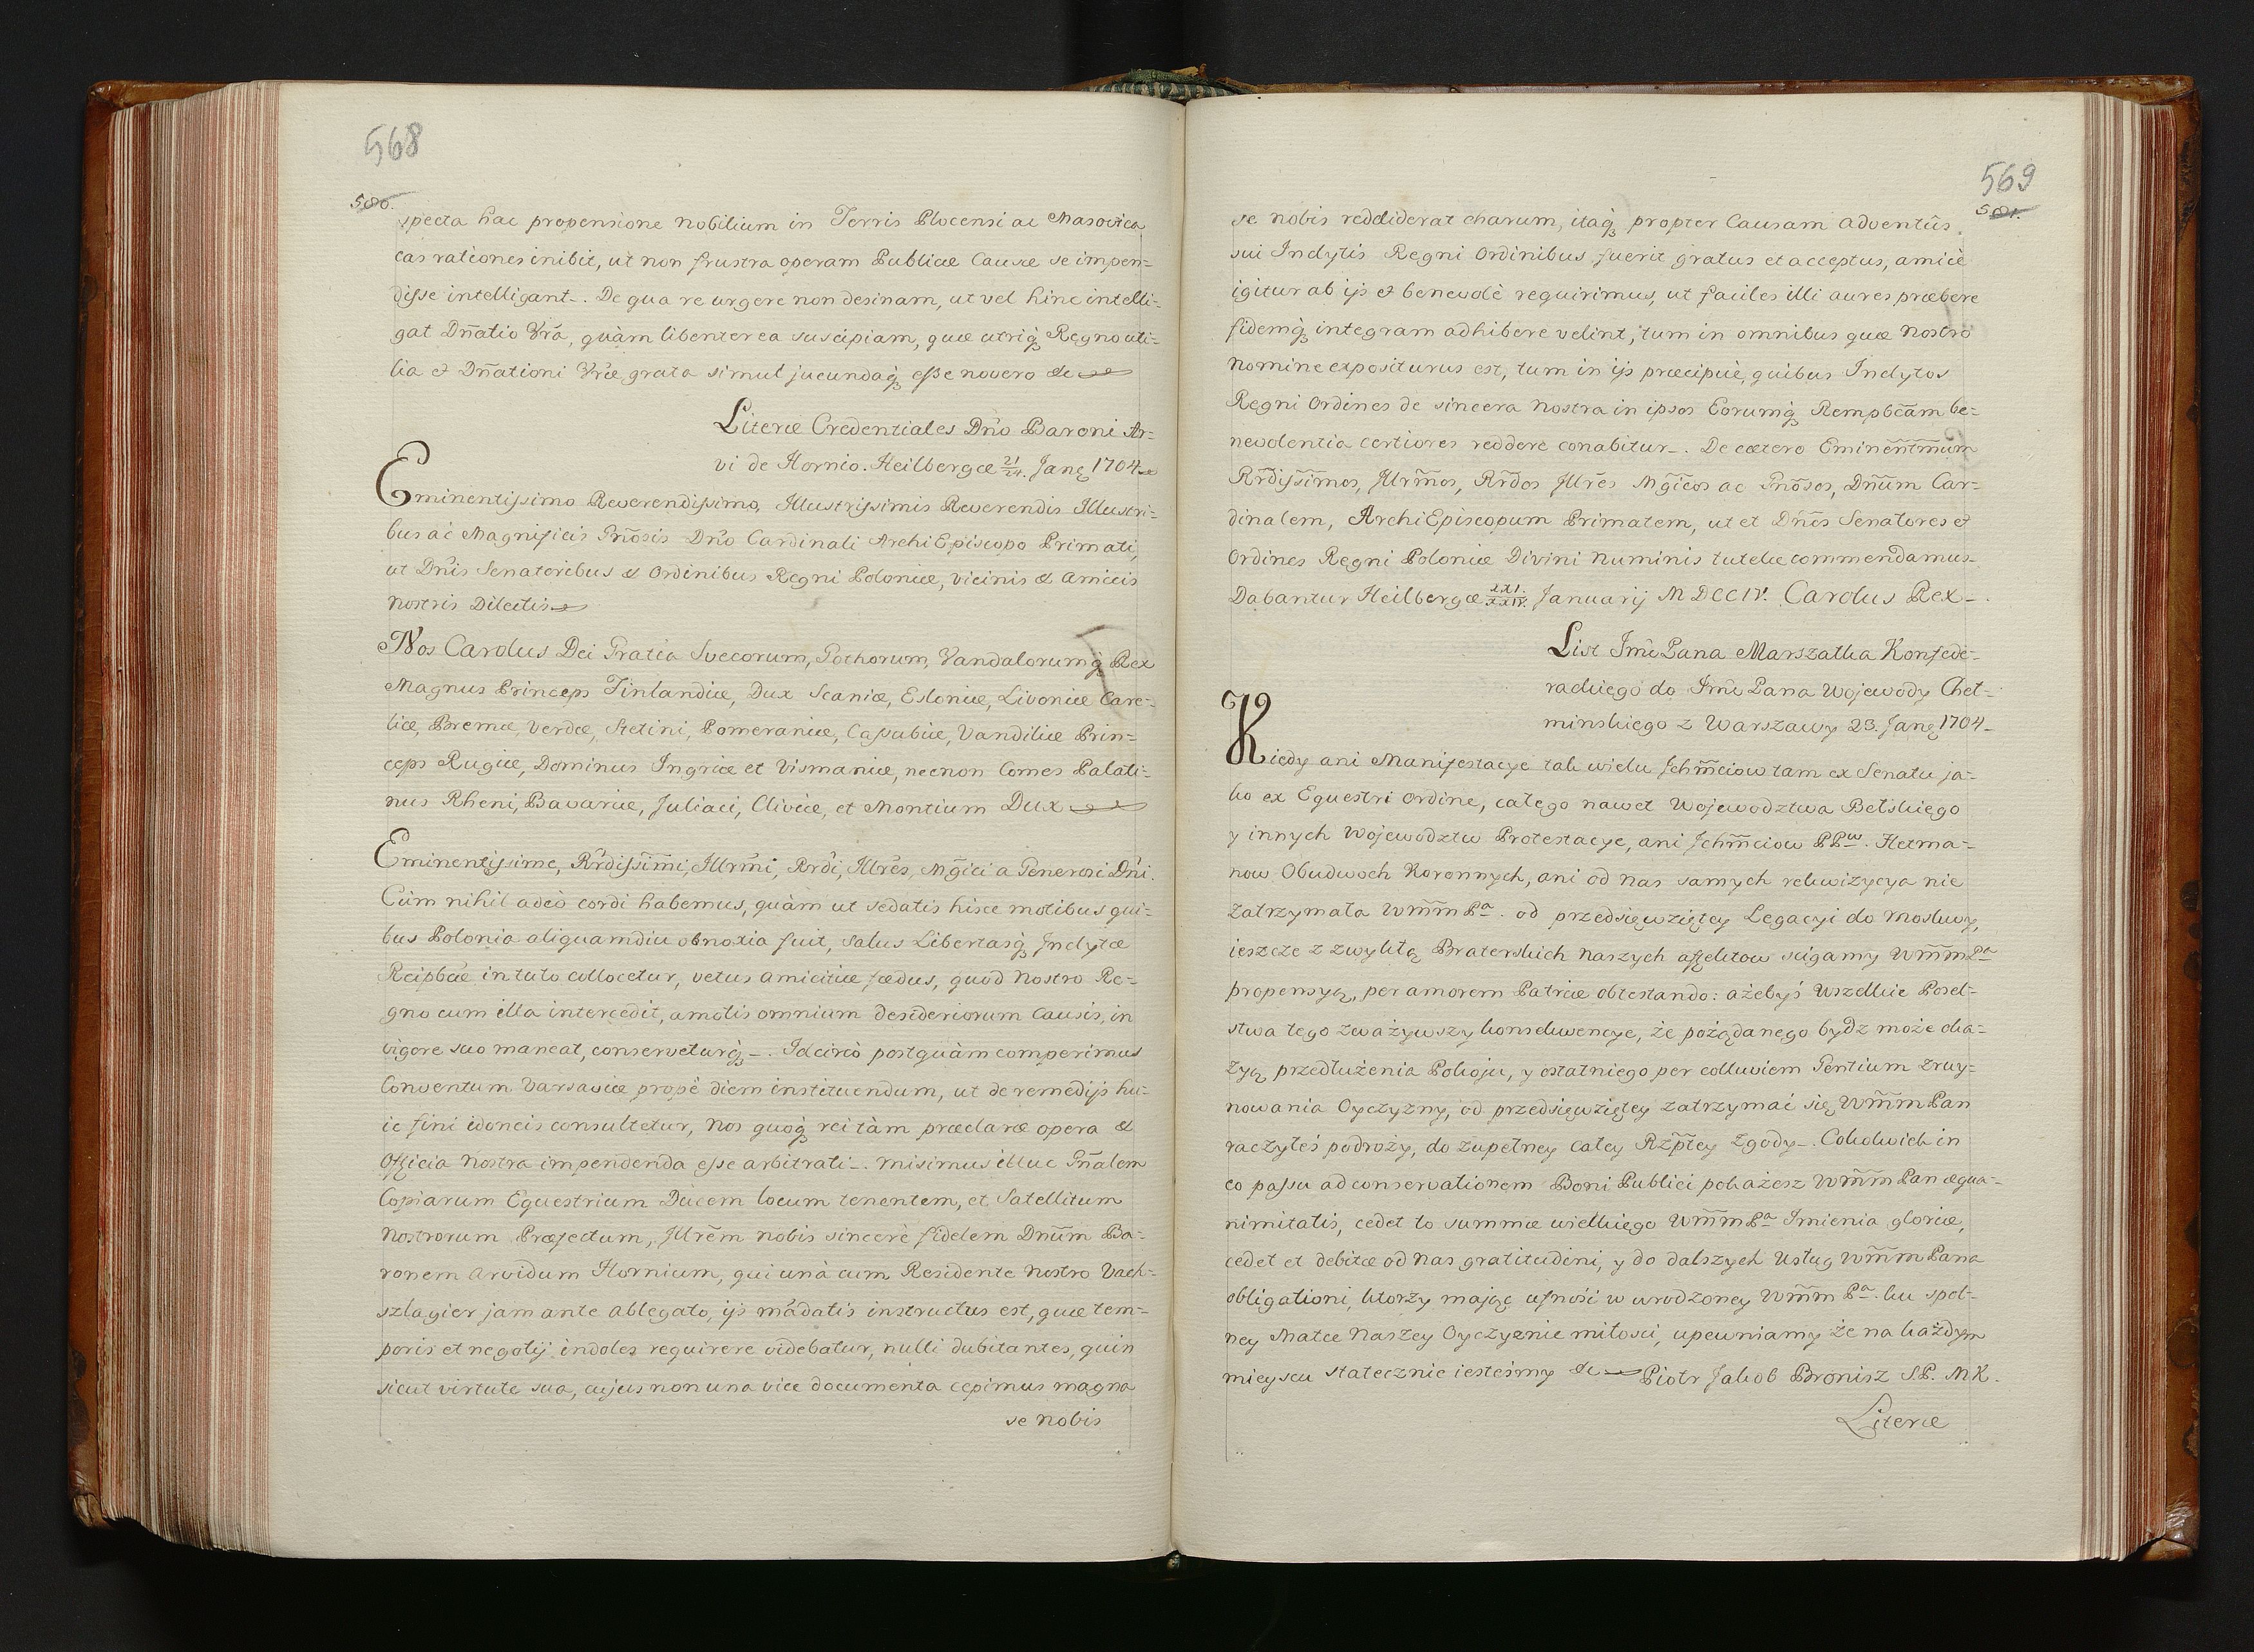 568
580.
specta hac propensione nobilium in Terris Plocensi ac Masovica
eas rationes inibit, ut non frustra operam Publicæ Causæ se impen=
disse intelligant_. De qua re urgere non desinam, ut vel hinc intelli=
gat Dn̄atio Vrā, quàm libenter ea suscipiam, quæ utriq̨ Regno uti=
lia et Dn̄ationi Vræ grata simul jucundaq̨ esse novero &c
Literæ Credentiales Dn̄o Baroni Ar=
vi de Hornio. Heilbergæ 21/24. Janę 1704
Eminentissimo Reverendissimo, Illustrissimis Reverendis Illustri=
bus ac Magnificis Gn̄osis Dn̄o Cardinali ArchiEpiscopo Primati,
ut Dn̄is Senatoribus & Ordinibus Regni Poloniæ, Vicinis & Amicis
Nostris Dilectis
Nos Carolus Dei Gratia Svecorum, Gothorum, Vandalorumq̨ Rex
Magnus Princeps Finlandiæ, Dux Scaniæ, Estoniæ, Livoniæ Care=
liæ, Bremæ, Verdæ, Stetini, Pomeraniæ, Cassubiæ, Vandiliæ Prin=
ceps Rugiæ, Dominus Ingriæ et Vismariæ, necnon Comes Palati=
nus Rheni, Bavariæ, Juliaci, Cliviæ, et Montium Dux
Eminentissime, Rŕdissim̄i, Illrm̄i, Rrdi, Illrēs, Mḡici a Generosi Dn̄i.
Cùm nihil adeò cordi habemus, quàm ut sedatis hisce motibus qui=
bus Polonia aliquamdiu obnoxia fuit, Salus Libertasq̨ Inclytæ
Reipbcæ in tuto collocetur, vetus amicitiæ fœdus, quod Nostro Re=
gno cum illa intercedit, amotis omnium desideriorum Causis, in
vigore suo maneat, conserveturq̨_. Idcircò postquàm comperimus
Conventum Varsaviæ propè diem instituendum, ut de remedijs hu=
ic fini idoneis consultetur, Nos quoq̨ rei tàm præclaræ opera &
Officia Nostra impendenda esse arbitrati_. Misimus illuc Gn̄alem
Copiarum Equestrium Ducem locum tenentem, et Satellitum
Nostrorum Præfectum, Illrēm nobis sincerè fidelem Dnūm Ba=
ronem Arvidum Hornium, qui unà cum Residente Nostro Vach=
szlagier jam ante ablegato, ijs mādatis instructus est, quæ tem=
poris et negotij indoles requirere videbatur, nulli dubitantes, quin
sicut virtute sua, cujus non una vice documenta cepimus magna
se nobis
569
581.
se nobis reddiderat charum, itaq̨ propter Causam adventûs
sui Inclytis Regni Ordinibus fuerit gratus et acceptus, amicè
igitur ab ijs & benevolè requirimus, ut faciles illi aures præbere
fidemq̨ integram adhibere velint, tum in omnibus quæ Nostro
Nomine expositurus est, tum in ijs præcipuè, quibus Inclytos
Regni Ordines de sincera Nostra in ipsos Eorumq̨ Rempbcām be=
nevolentia certiores reddere conabitur_. De cætero Eminen̄tm̄um
Rr̄dissim̄os, Illrm̄os, Rr̄dos Illrēs Mḡicos ac Gnōsos, Dnūm Car=
dinalem, ArchiEpiscopum Primatem, ut et Dn̄es Senatores &
Ordines Regni Poloniæ Divini Numinis tutelæ commendamus_
Dabantur Heilbergæ XXI./XXIV. Januarij MDCCIV. Carolus Rex_.
List Jm̄ Pana Marszałka Konfede=
rackiego do Jm̄ Pana Wojewody Cheł=
minskiego z Warszawy 23. Janę 1704_
Kiedy ani Manifestacye tak wielu Jchm̄ciow tam ex Senatu ja=
ko ex Equestri Ordine, całęgo nawet Wojewodztwa Bełskiego
y innych Wojewodztw Protestacye, ani Jchm̄ciow PPw. Hetma=
now Obudwoch Koronnych, ani od nas samych rekwizycya nie
zatrzymała Wm̄m Pa. od przedsięwziętey Legacyi do Moskwy,
ieszcze z zwykłą Braterskich Naszych affektow scigamy Wm̄m Pa
propensyą, per amorem Patriæ obtestando: ażebyś Wszelkie Posel=
stwa tego zważywszy konsekwencye, że pożądanego bydz może oka=
zyą przedłużenia Pokoju, y ostatniego per colluviem Gentium zruy=
nowania Oyczyzny, od przedsięwziętey zatrzymać się Wm̄m Pan
raczyłeś podroży, do zupełney całey Rzp̄tey Zgody_. Cokolwiek in
eo passu ad conservationem Boni Publici pokażesz Wm̄m Pan æqua=
nimitatis, cedet to summæ wielkiego Wm̄m Pa Jmienia gloriæ,
cedet et debitæ od Nas gratitudini, y do dalszych Usług Wm̄m Pana
obligationi, ktorzy mając ufność w urodzoney Wm̄m Pa. ku spol=
ney Matce Naszey Oyczyznie miłosci, upewniamy że na każdym
mieyscu statecznie iesteśmy &c Piotr Jakob Bronisz S.P. MK.
Literæ